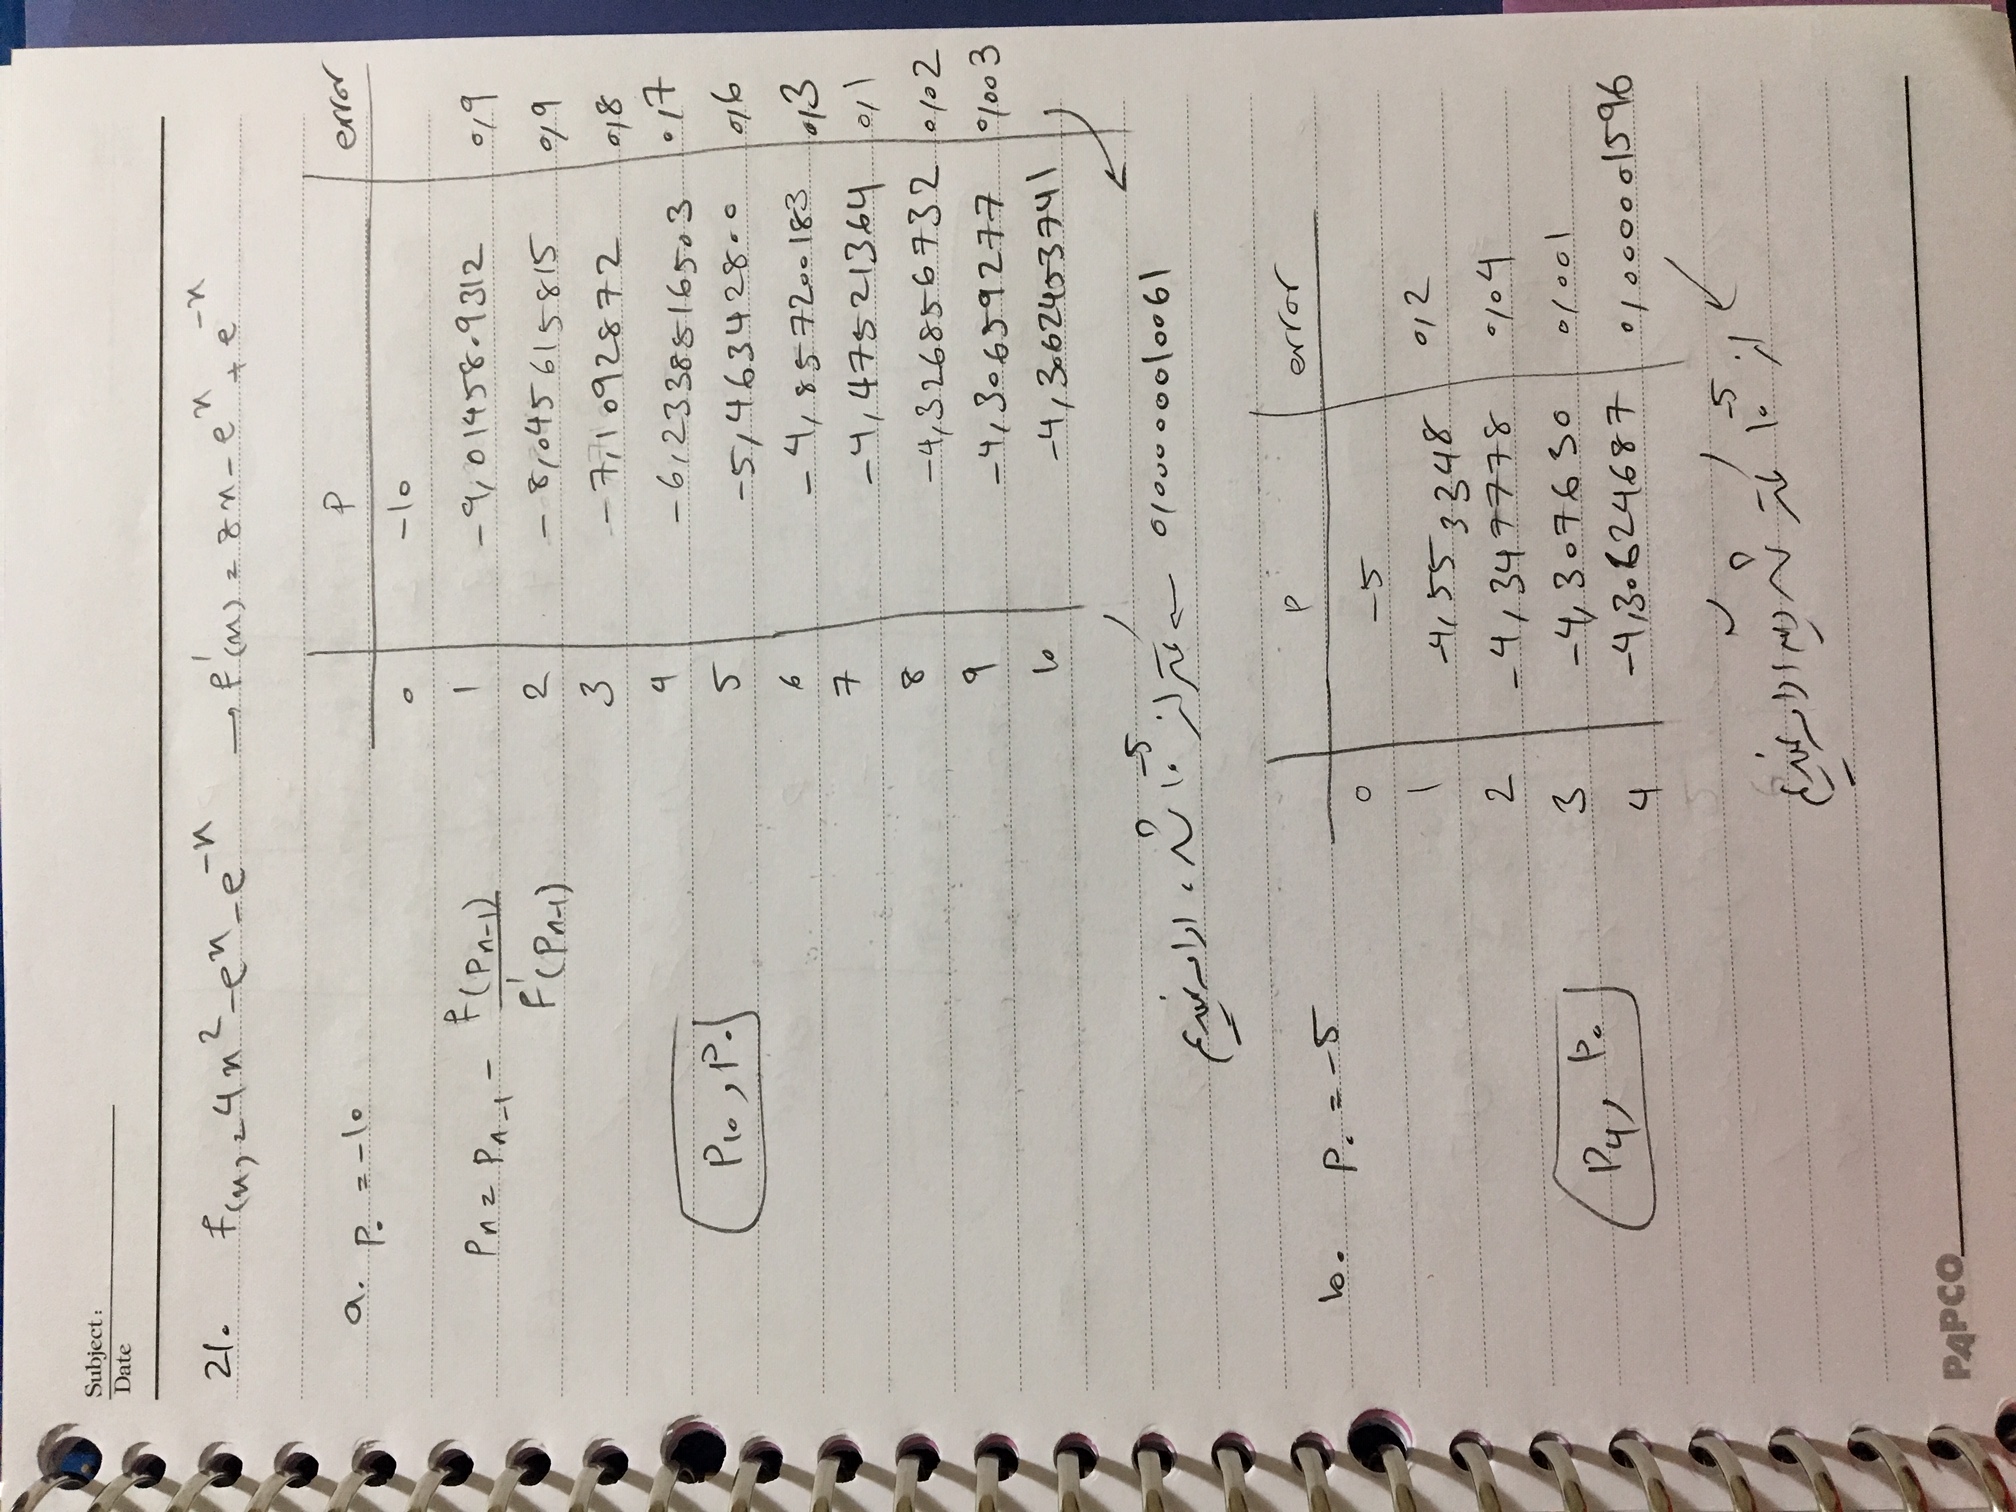 Subject:
Date
21. f(x)=4x²-eˣ-e⁻ˣ → f'(x)=8x-eˣ+e⁻ˣ
P error
a. P₀ = -10
0 -10
Pn = Pn-1 - f(Pn-1) / f'(Pn-1)
1 -9,0145809312 0,9
2 -8,045615815 0,9
3 -7,1092872 0,8
4 -6,2338516503 0,7
P10 , P0
5 -5,46342800 0,6
6 -4,857200183 0,3
7 -4,47521364 0,1
8 -4,326856732 0,02
9 -4,30659277 0,003
10 -4,3062453741
0,00000010061 → کمتر از 10⁻⁵ شد، ادامه نمیدیم
P error
b. P₀ = -5
0 -5
1 -4,553348 0,2
2 -4,347778 0,04
3 -4,307630 0,001
P4 , P0
4 -4,30624687 0,000001596
از 10⁻⁵ کمتر شد دیگه ادامه نمیدیم
PAPCO